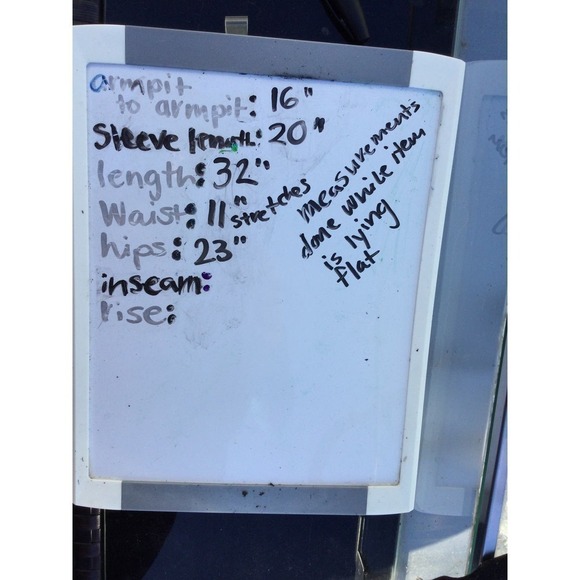 armpit
to armpit: 16"
Sleeve length: 20"
length: 32"
Waist: 11" stretches
hips: 23"
inseam:
rise:
measurements
done while item
is lying
flat